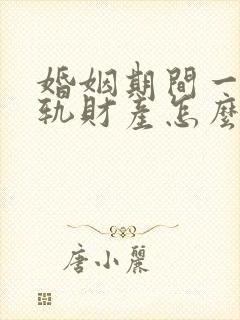 婚姻期間一
軌財產怎麼
唐小麗